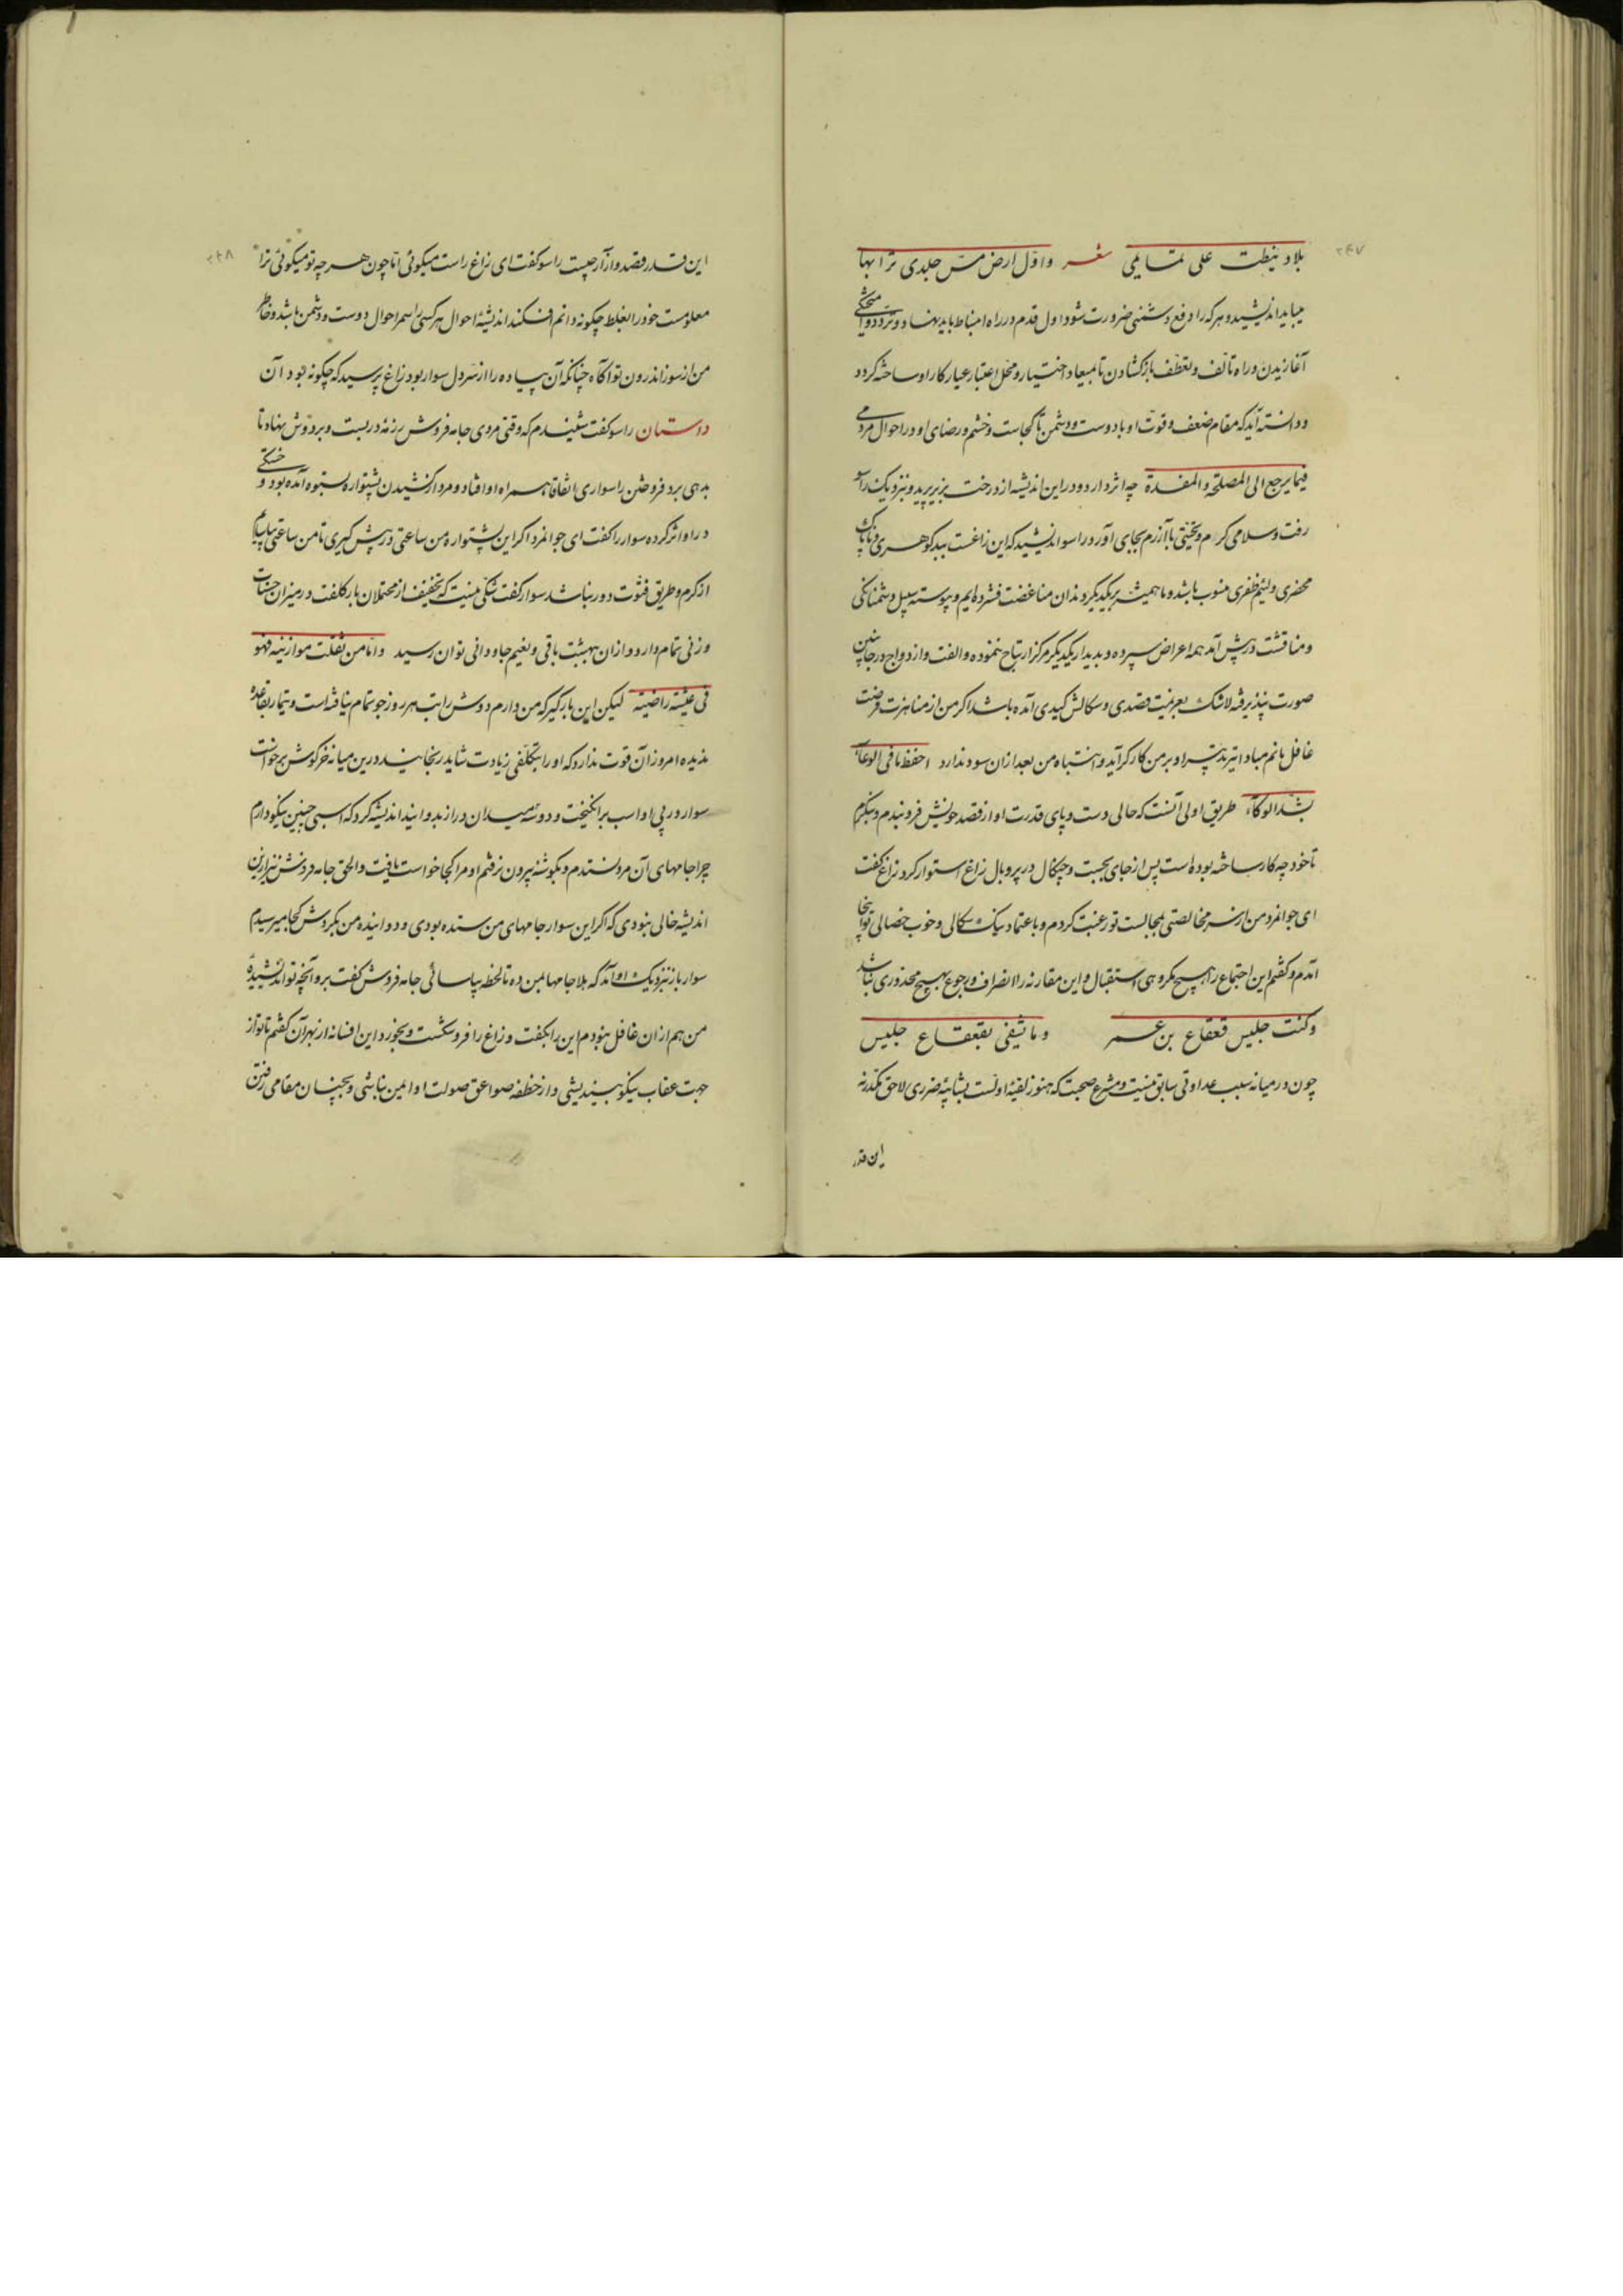 ۲۴۷
بلاد نیطت علی تمایمی شعر و اوّل ارض مسّ جلدی ترابها
میباید اندیشید و هرکه را دفع دشمنی ضرورت شود اول قدم در راه انبساط باید نهاد و تودد و آشنایی
آغازیدن و راه تألف و تعطف باز گشادن تا میعاد اختیار و محل اعتبار عیار کار او ساخته گردد
و دانسته آید که مقام ضعف و قوت او با دوست و دشمن تا کجاست و خشم و رضای او در احوال مردمی
فیما یرجع الی المصلحة و المفسدة چه اثر دارد و در این اندیشه از درخت بزیر پرید و بنزدیک راسو
رفت و سلامی گرم و تحیتی با آزرم بجای آورد راسو اندیشید که این زاغست ببد گوهری و ناپاک
محضری و لئیم ظفری منسوب باشد و ما همیشه بر یکدیگر دندان مباغضت فشرده‌ایم و پیوسته سبیل دشمنانگی
و مناقشت در پیش آمد همه اعراض سپرده و بدیدار یکدیگر هرگز ارتیاح ننموده و الفت و ازدواج در جانبین
صورت نپذیرفته لاشک بعزیمت قصدی و سگالش کیدی آمده باشد اگر من از مناهزت فرصت
غافل مانم مبادا تیر تدبیر او بر من کارگر آید و انتباه من بعد از آن سود ندارد احفظ ما فی الوعاء
بشد الوکاء طریق اولی آنست که حالی دست و پای قدرت او از قصد خویش فرو بندم و بنگرم
تا خود چه کار ساخته بوده است پس از جای بجست و چنگال در پر و بال زاغ استوار کرد زاغ گفت
ای جوانمرد من از سر مخالصتی بمجالست تو رغبت کردم و باعتماد نیک سگالی و خوب خصالی تو اینجا
آمدم و گفتم این اجتماع را هیچ مکروهی استقبال و این مقارنه را انصراف و رجوع بهیچ محذوری نباشد
و کنت جلیس قعقاع بن عمر و ما یشقی بقعقاع جلیس
چون در میانه سبب عداوتی سابق نیست و مشرع صحبت که هنوز لقیهٔ اولست بشایبهٔ ضرری لاحق مکدر نه
این قدر
۲۴۸
این قدر قصد و آزار چیست راسو گفت ای زاغ راست میگوئی اما چون هرچه تو میگوئی ترا
معلومست خود را بغلط چگونه دانم افکند اندیشهٔ احوال هر کسی را سمر احوال دوست و دشمن باشد و خاطر
من از سوز اندرون تو آگاه چنانکه آن پیاده را از سر دل سوار بود زاغ پرسید که چگونه بود آن
داستان راسو گفت شنیدم که وقتی مردی جامه فروش رزمهٔ در بست و بر دوش نهاد تا
بدهی برد فروختن را سواری اتفاقا همراه او افتاد و مرد از کشیدن پشتواره بستوه آمده بود و خستگی
در او اثر کرده سوار را گفت ای جوانمرد اگر این پشتواره من ساعتی در پیش گیری تا من ساعتی بیاسایم
از کرم و طریق فتوت دور نباشد سوار گفت شکی نیست که تخفیف از محتملان بار کلفت در میزان حسنات
وزنی تمام دارد و از آن ببهشت باقی و نعیم جاودانی توان رسید و اما من ثقلت موازینه فهو
فی عیشة راضیة لیکن این بارگیر که من دارم دوش راتب هر روز جو تمام نیافته است و تیمار بقاعده
ندیده امروز آن قوت ندارد که او را بتکلفی زیادت شاید رنجانید درین میانه خرگوشی برخاست
سوار در پی او اسب برانگیخت و دو سه میدان دراز بدوانید اندیشه کرد که اسبی چنین نیکو دارم
چرا جامهای آن مرد نستدم و بگوشهٔ بیرون نرفتم او مرا کجا خواست یافت و الحق جامه فروش نیز ازین
اندیشه خالی نبودی که اگر این سوار جامهای من ستده بودی و دوانیده من بگردش کجا میرسیدم
سوار باز نزدیک او آمد که هلا جامها بمن ده تا لحظه بیاسائی جامه فروش گفت برو آنچه تو اندیشیدهٔ
من هم از آن غافل نبودم این بگفت و زاغ را فرو شکست و بخورد این افسانه از بهر آن گفتم تا تو از
جهت عقاب نیکو بیندیشی و از خطفهٔ صواعق صولت او ایمن نباشی و بچنان مقامی رفتن